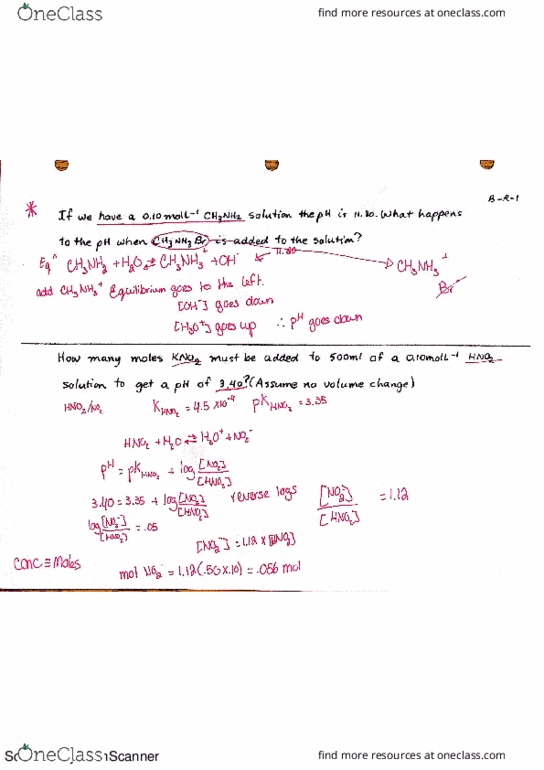 OneClass
find more resources at oneclass.com
B-R-1
* If we have a 0.10 mol L⁻¹ CH₃NH₂ solution the pH is 11.80. What happens
to the pH when CH₃NH₃Br is added to the solution?
Eqⁿ CH₃NH₂ + H₂O ⇌ CH₃NH₃⁺ + OH⁻ 11.80 CH₃NH₃⁺
add CH₃NH₃⁺ Equilibrium goes to the left. Br⁻
[OH⁻] goes down
[H₃O⁺] goes up ∴ pH goes down
How many moles KNO₂ must be added to 500ml of a 0.10 mol L⁻¹ HNO₂
solution to get a pH of 3.40? (Assume no volume change)
HNO₂/NO₂ K HNO₂ = 4.5 x10⁻⁴ pK HNO₂ = 3.35
HNO₂ + H₂O ⇌ H₃O⁺ + NO₂⁻
pH = pK HNO₂ + log [NO₂⁻]/[HNO₂]
3.40 = 3.35 + log [NO₂⁻]/[HNO₂] reverse logs [NO₂⁻]/[HNO₂] = 1.12
log [NO₂⁻]/[HNO₂] = .05
[NO₂⁻] = 1.12 x [HNO₂]
conc ≡ moles
mol NO₂⁻ = 1.12 (.50 x .10) = .056 mol
OneClass
Scanner
find more resources at oneclass.com